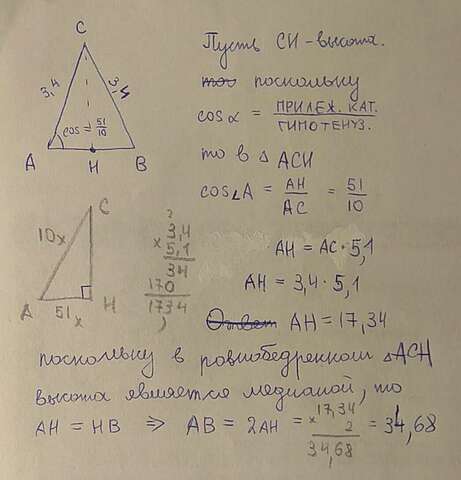 C
3,4
3,4
cos = 51/10
A H B
Пусть CH – высота.
поскольку
cos α = ПРИЛЕЖ. КАТ. / ГИПОТЕНУЗ.
то в △ ACH
cos∠A = AH/AC = 51/10
AH = AC · 5,1
AH = 3,4 · 5,1
Ответ AH = 17,34
C
10x
A 51x H
2
3,4
× 5,1
34
170
1734
поскольку в равнобедренном △ACH
высота является медианой, то
AH = HB ⇒ AB = 2AH = 17,34 × 2 = 34,68
34,68